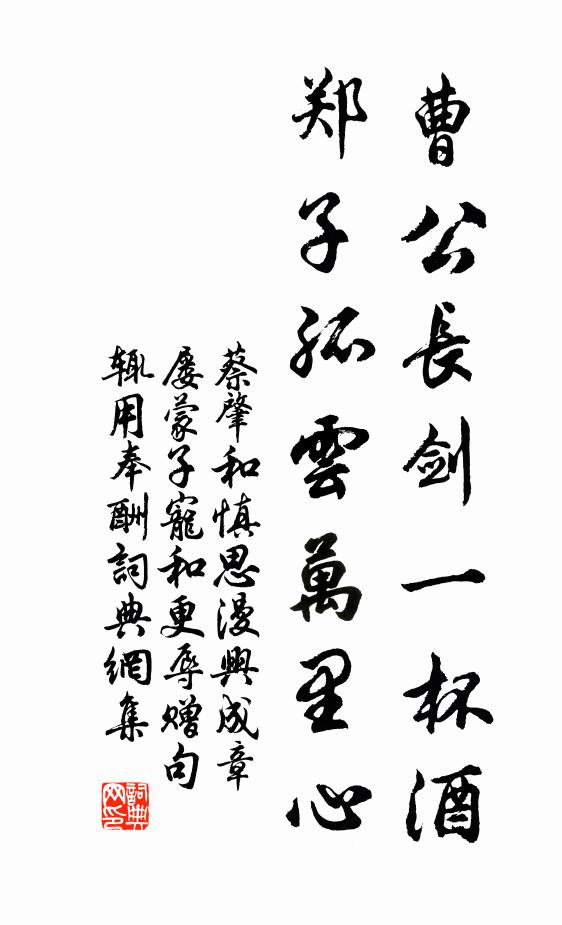 曹公長劍一杯酒
郑子孤雲萬里心
蔡肇和慎思漫興成章
屡蒙子寵和更辱贈句
輒用奉酬詞典網集
詞典网印